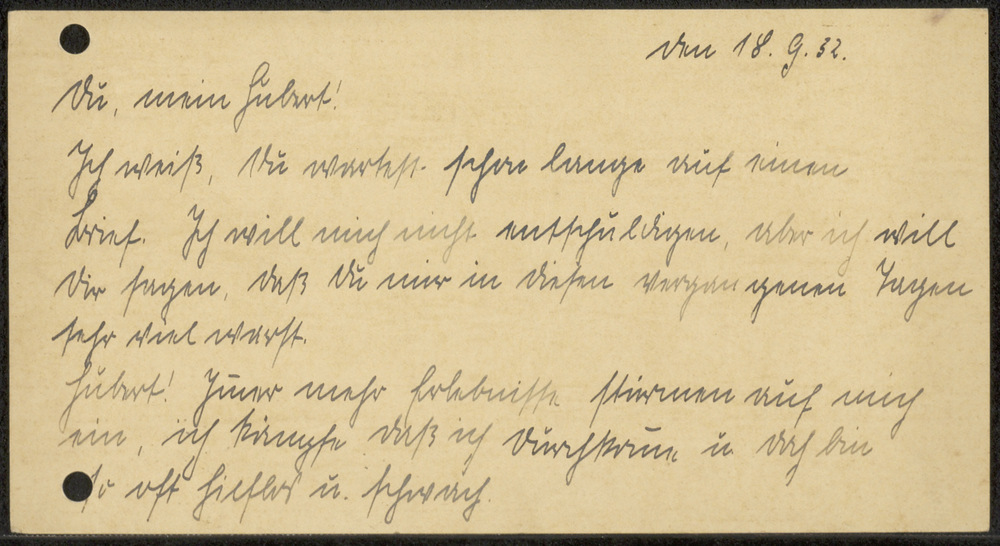 den 18. 9. 32.
Du, mein Hubert!
Ich weiß, Du wartest schon lange auf einen
Brief. Ich will mich nicht entschuldigen, aber ich will
Dir sagen, daß Du mir in diesen vergangenen Tagen
sehr viel warst.
Hubert! Im̄er mehr Erlebnisse stürmen auf mich
ein, ich kämpfe daß ich durchkom̄e u. doch bin
so oft hilflos u. schwach.